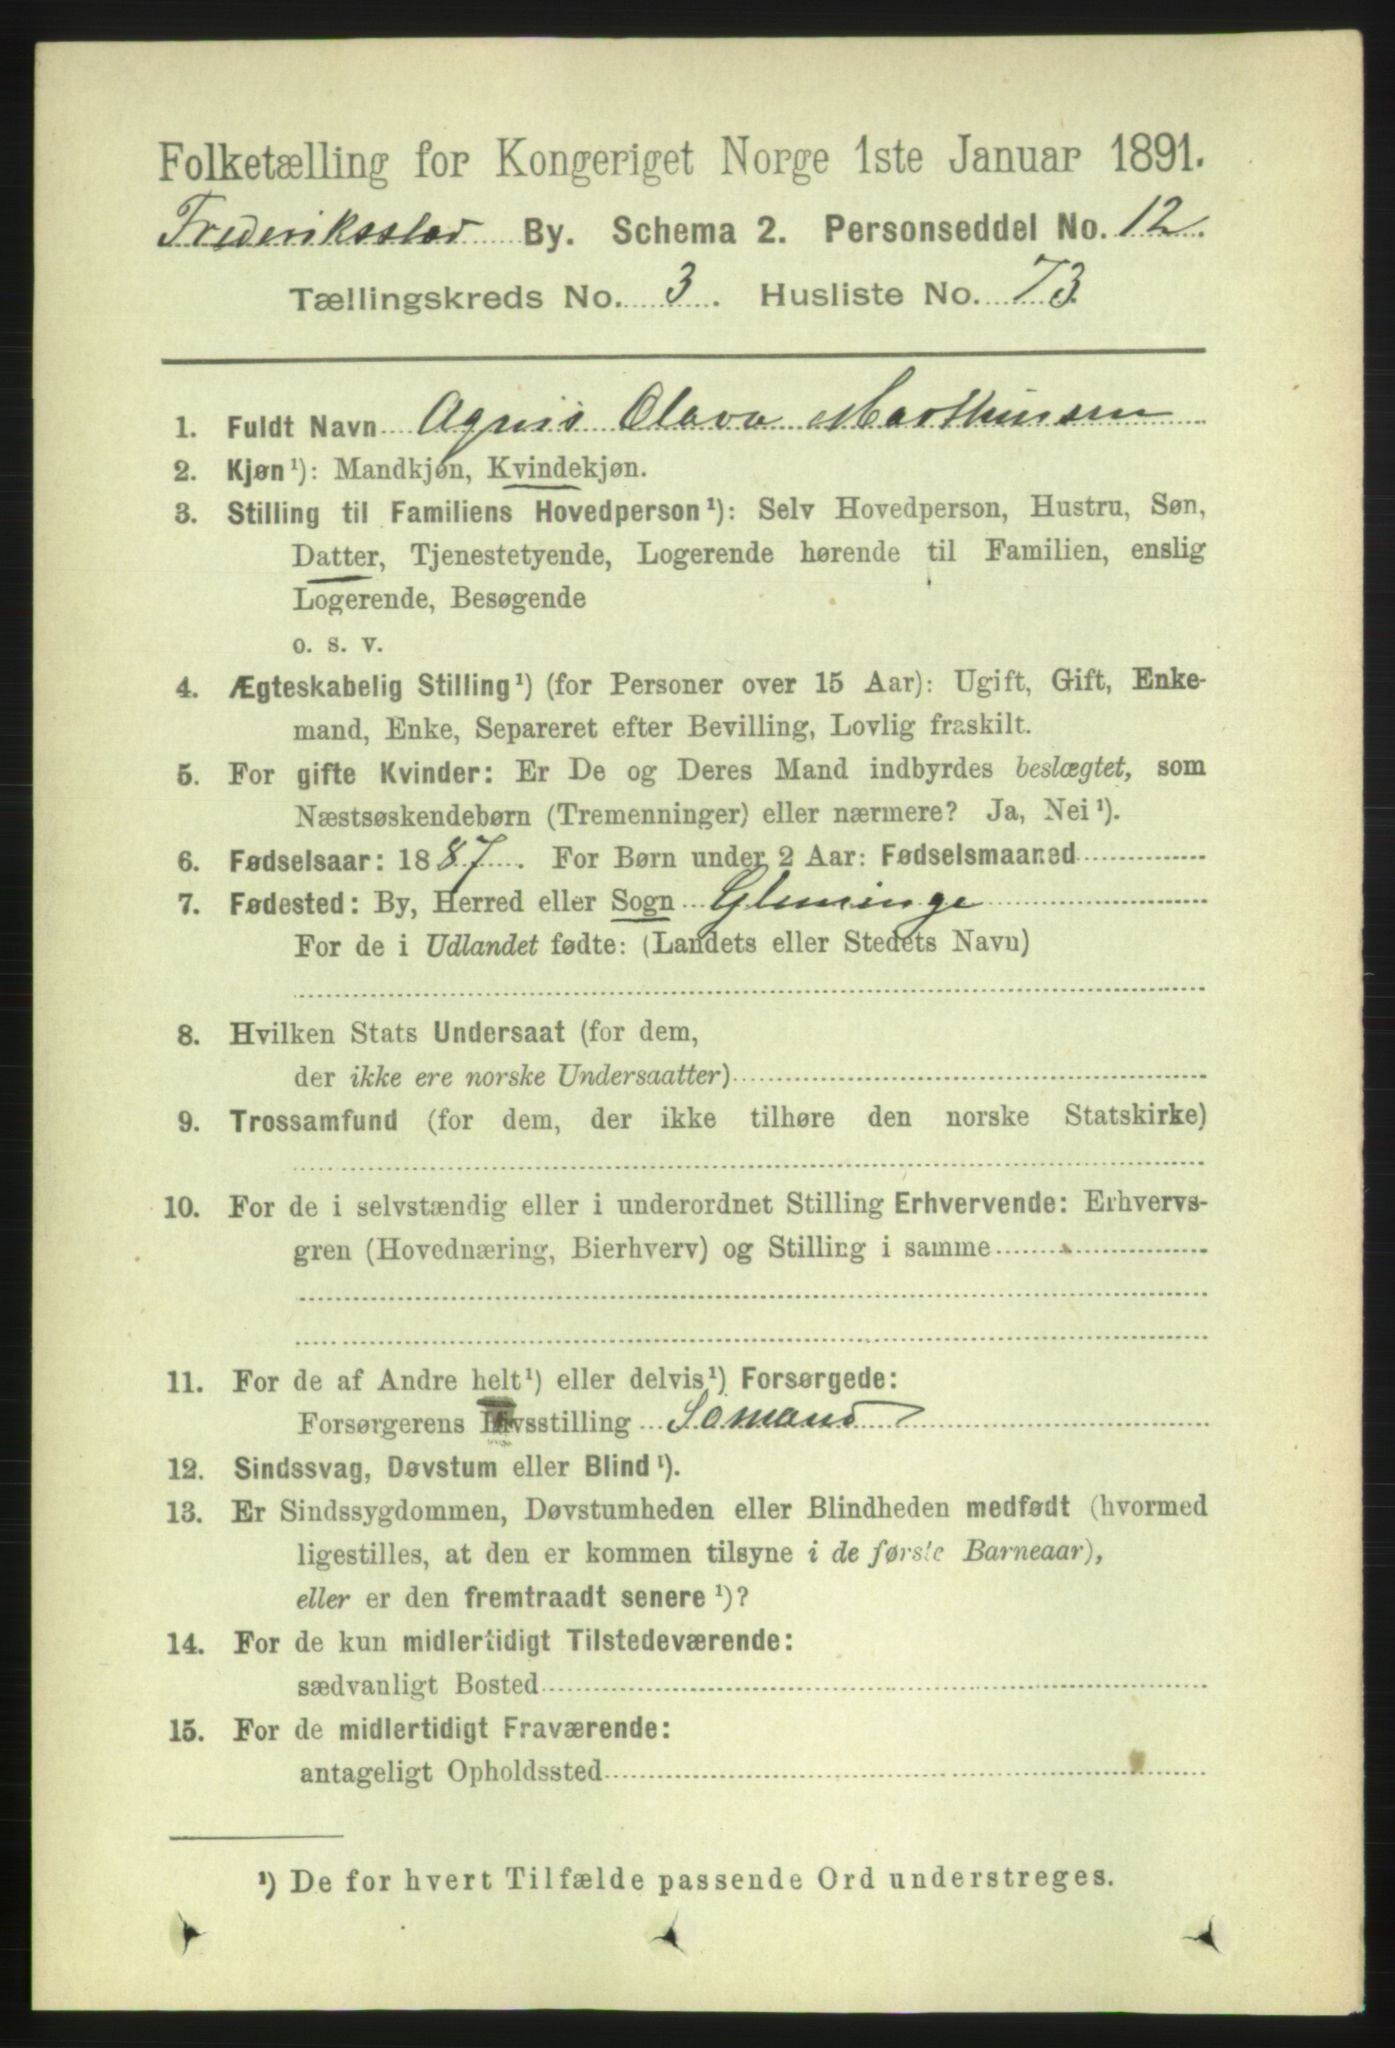 Folketælling for Kongeriget Norge 1ste Januar 1891.
Frederiksstad By. Schema 2. Personseddel No. 12.
Tællingskreds No. 3. Husliste No. 73
1. Fuldt Navn Agnis Olava Marthinsen
2. Kjøn¹): Mandkjøn, Kvindekjøn.
3. Stilling til Familiens Hovedperson¹): Selv Hovedperson, Hustru, Søn,
Datter, Tjenestetyende, Logerende hørende til Familien, enslig
Logerende, Besøgende
o. s. v.
4. Ægteskabelig Stilling¹) (for Personer over 15 Aar): Ugift, Gift, Enke-
mand, Enke, Separeret efter Bevilling, Lovlig fraskilt.
5. For gifte Kvinder: Er De og Deres Mand indbyrdes beslægtet, som
Næstsøskendebørn (Tremenninger) eller nærmere? Ja, Nei¹).
6. Fødselsaar: 1887. For Børn under 2 Aar: Fødselsmaaned
7. Fødested: By, Herred eller Sogn Gleminge
For de i Udlandet fødte: (Landets eller Stedets Navn)
8. Hvilken Stats Undersaat (for dem,
der ikke ere norske Undersaatter)
9. Trossamfund (for dem, der ikke tilhøre den norske Statskirke)
10. For de i selvstændig eller i underordnet Stilling Erhvervende: Erhvervs-
gren (Hovednæring, Bierhverv) og Stilling i samme
11. For de af Andre helt¹) eller delvis¹) Forsørgede:
Forsørgerens Livsstilling Sömand
12. Sindssvag, Døvstum eller Blind¹).
13. Er Sindssygdommen, Døvstumheden eller Blindheden medfødt (hvormed
ligestilles, at den er kommen tilsyne i de første Barneaar),
eller er den fremtraadt senere¹)?
14. For de kun midlertidigt Tilstedeværende:
sædvanligt Bosted
15. For de midlertidigt Fraværende:
antageligt Opholdssted
¹) De for hvert Tilfælde passende Ord understreges.